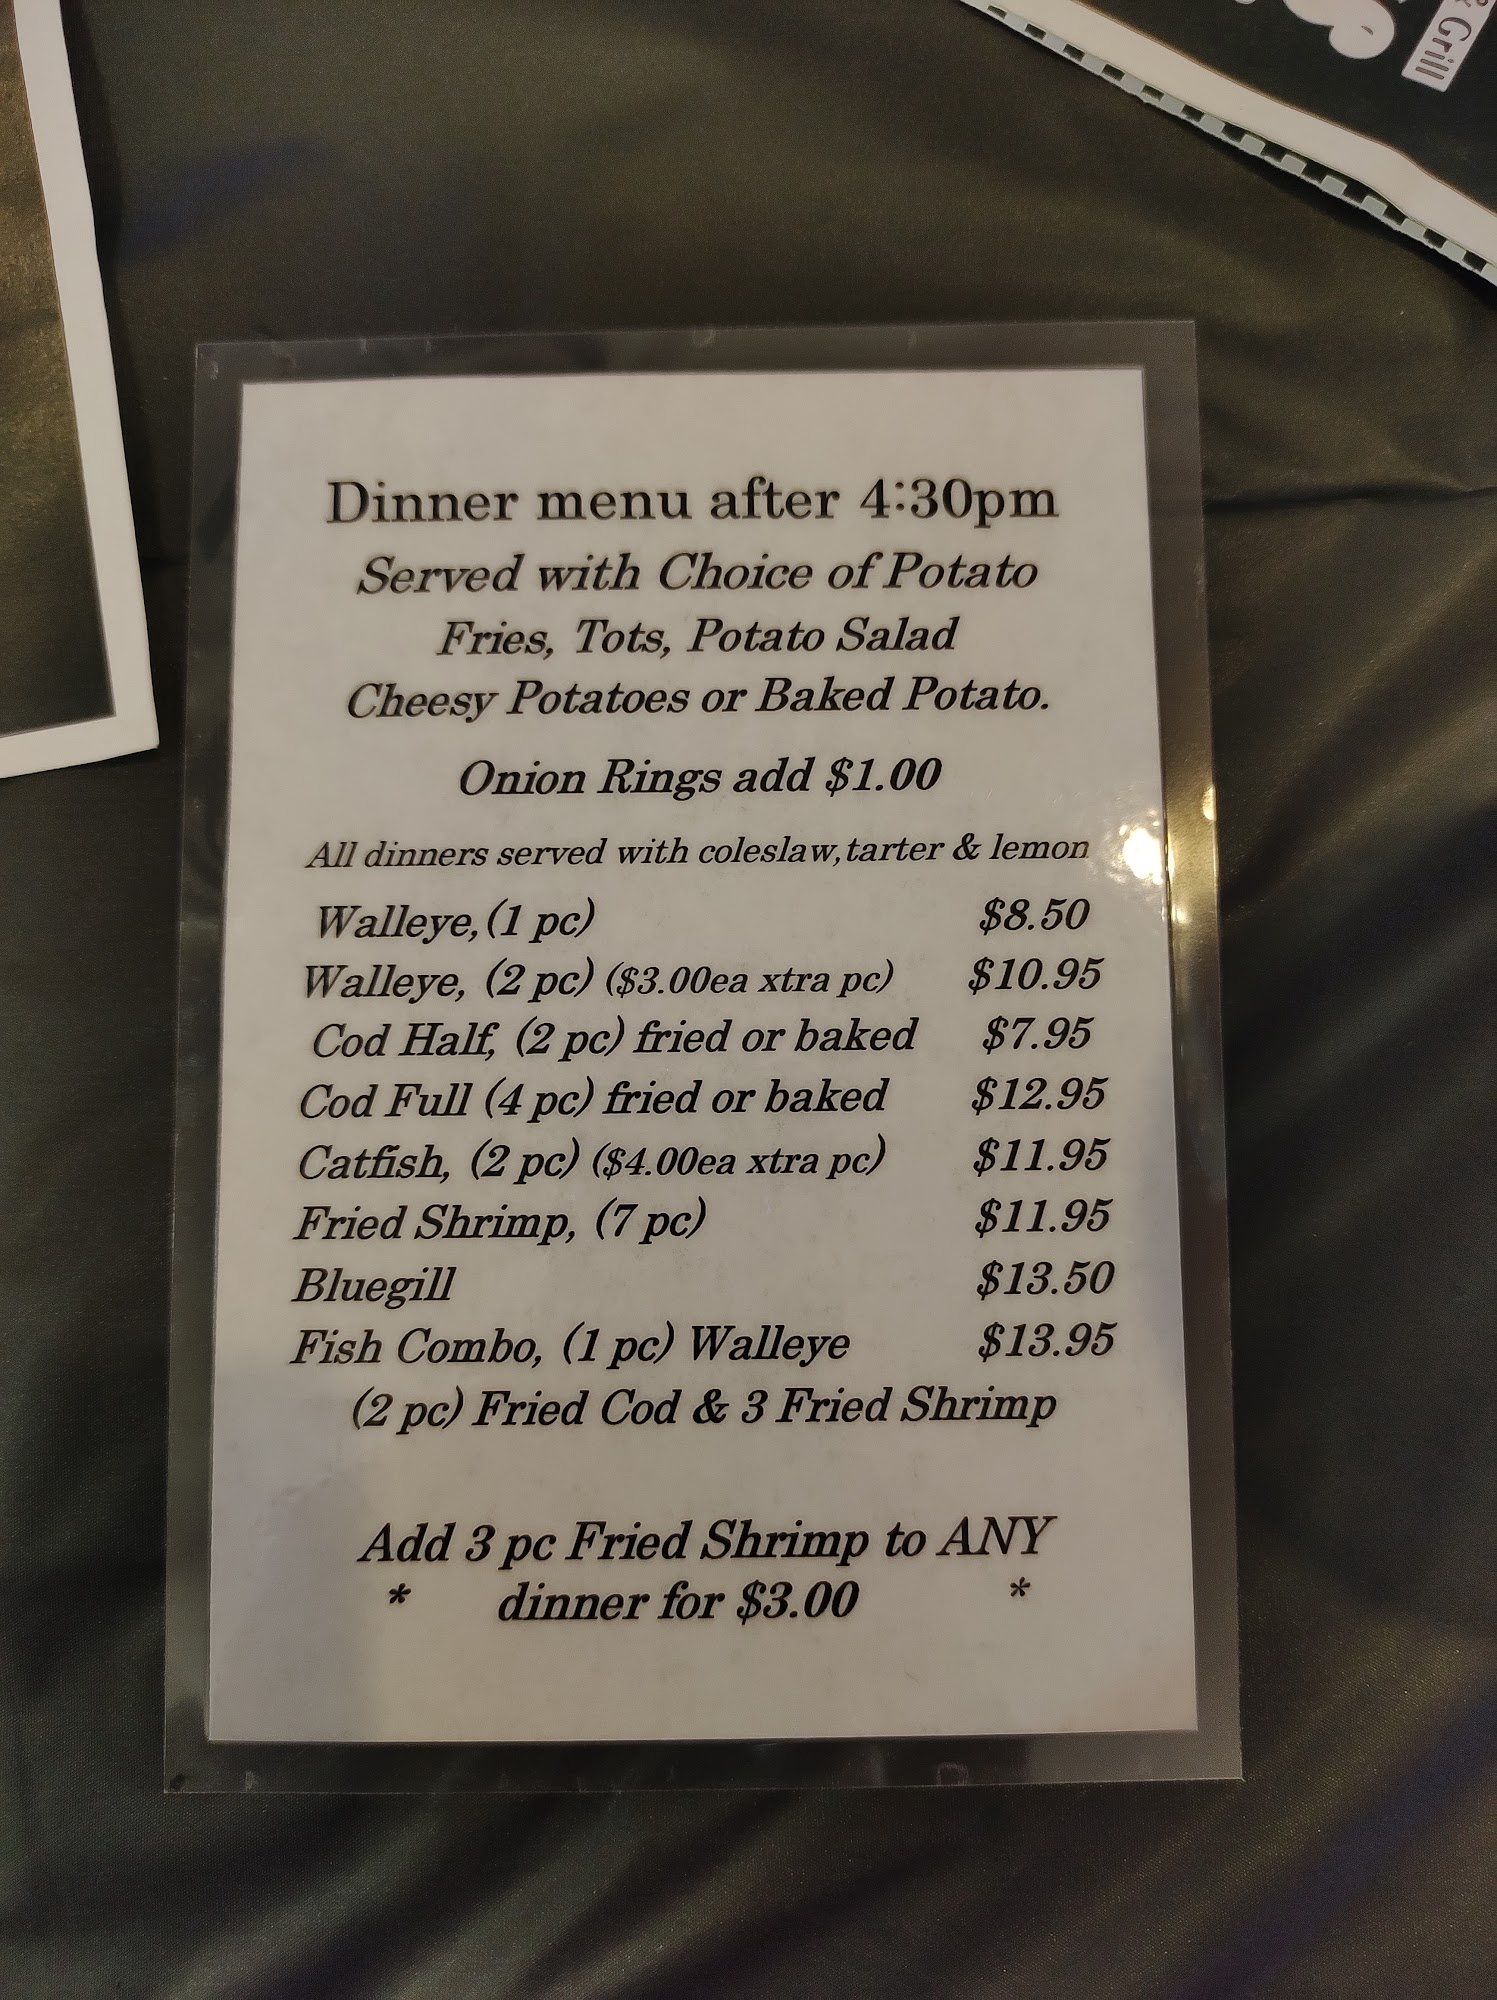 & Grill
Dinner menu after 4:30pm
Served with Choice of Potato
Fries, Tots, Potato Salad
Cheesy Potatoes or Baked Potato.
Onion Rings add $1.00
All dinners served with coleslaw,tarter & lemon
Walleye,(1 pc) $8.50
Walleye, (2 pc) ($3.00ea xtra pc) $10.95
Cod Half, (2 pc) fried or baked $7.95
Cod Full (4 pc) fried or baked $12.95
Catfish, (2 pc) ($4.00ea xtra pc) $11.95
Fried Shrimp, (7 pc) $11.95
Bluegill $13.50
Fish Combo, (1 pc) Walleye $13.95
(2 pc) Fried Cod & 3 Fried Shrimp
Add 3 pc Fried Shrimp to ANY
* dinner for $3.00 *